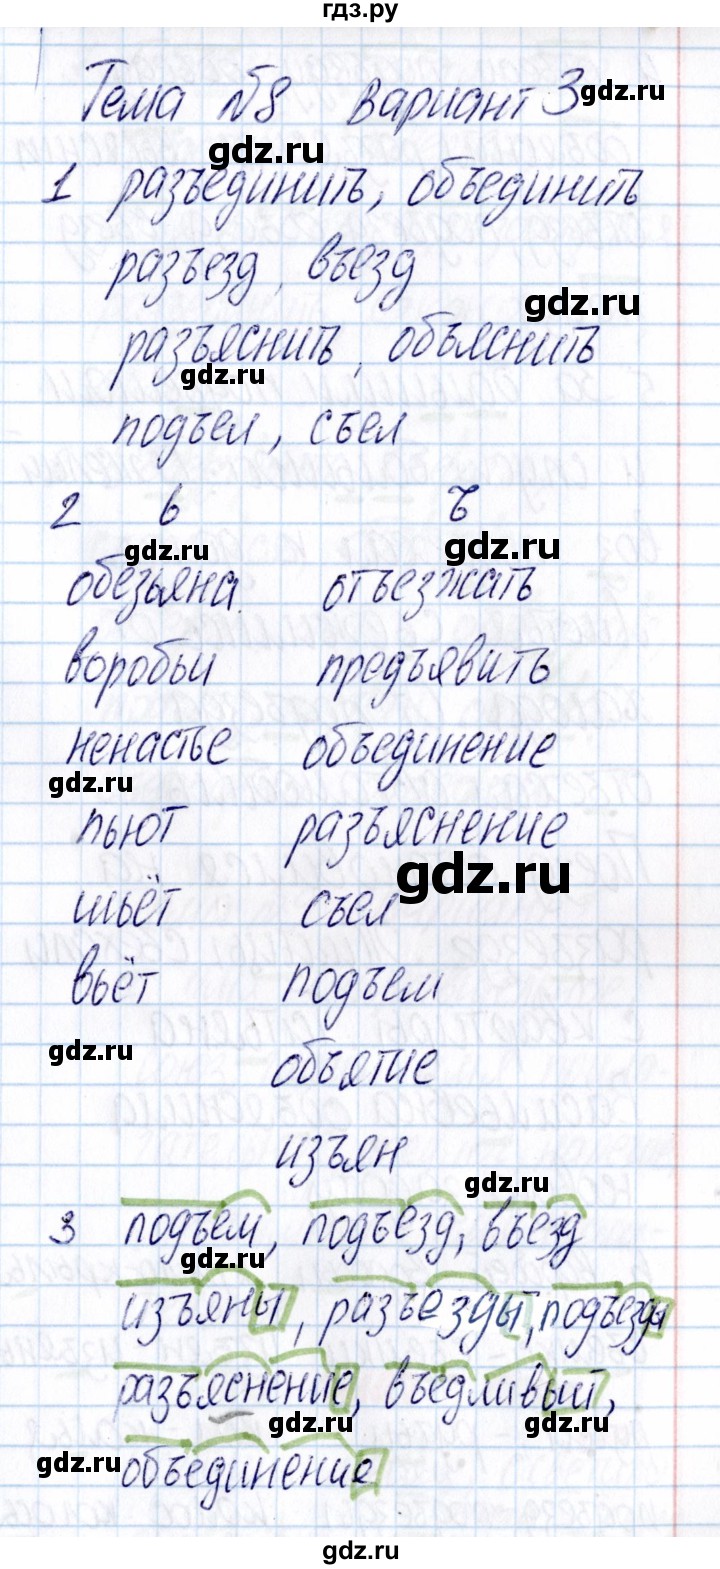 гдз.ру
Тема №8 Вариант 3
gdz.ru
gdz.ru
1 разъединить, объединить
разъезд, въезд
gdz.ru
разъяснить, объяснить
gdz.ru
подъел, съел
2 ь ъ
gdz.ru gdz.ru
обезьяна отъезжать
воробьи предъявить
ненастье объединение
gdz.ru
пьют разъяснение
gdz.ru
шьёт съел
вьёт подъем
gdz.ru
объятие
изъян
gdz.ru
3 подъем, подъезд, въезд
gdz.ru
изъяны, разъезды, подъезды
разъяснение, въедливый,
gdz.ru gdz.ru
gdz.ru
объединение
gdz.ru gdz.ru